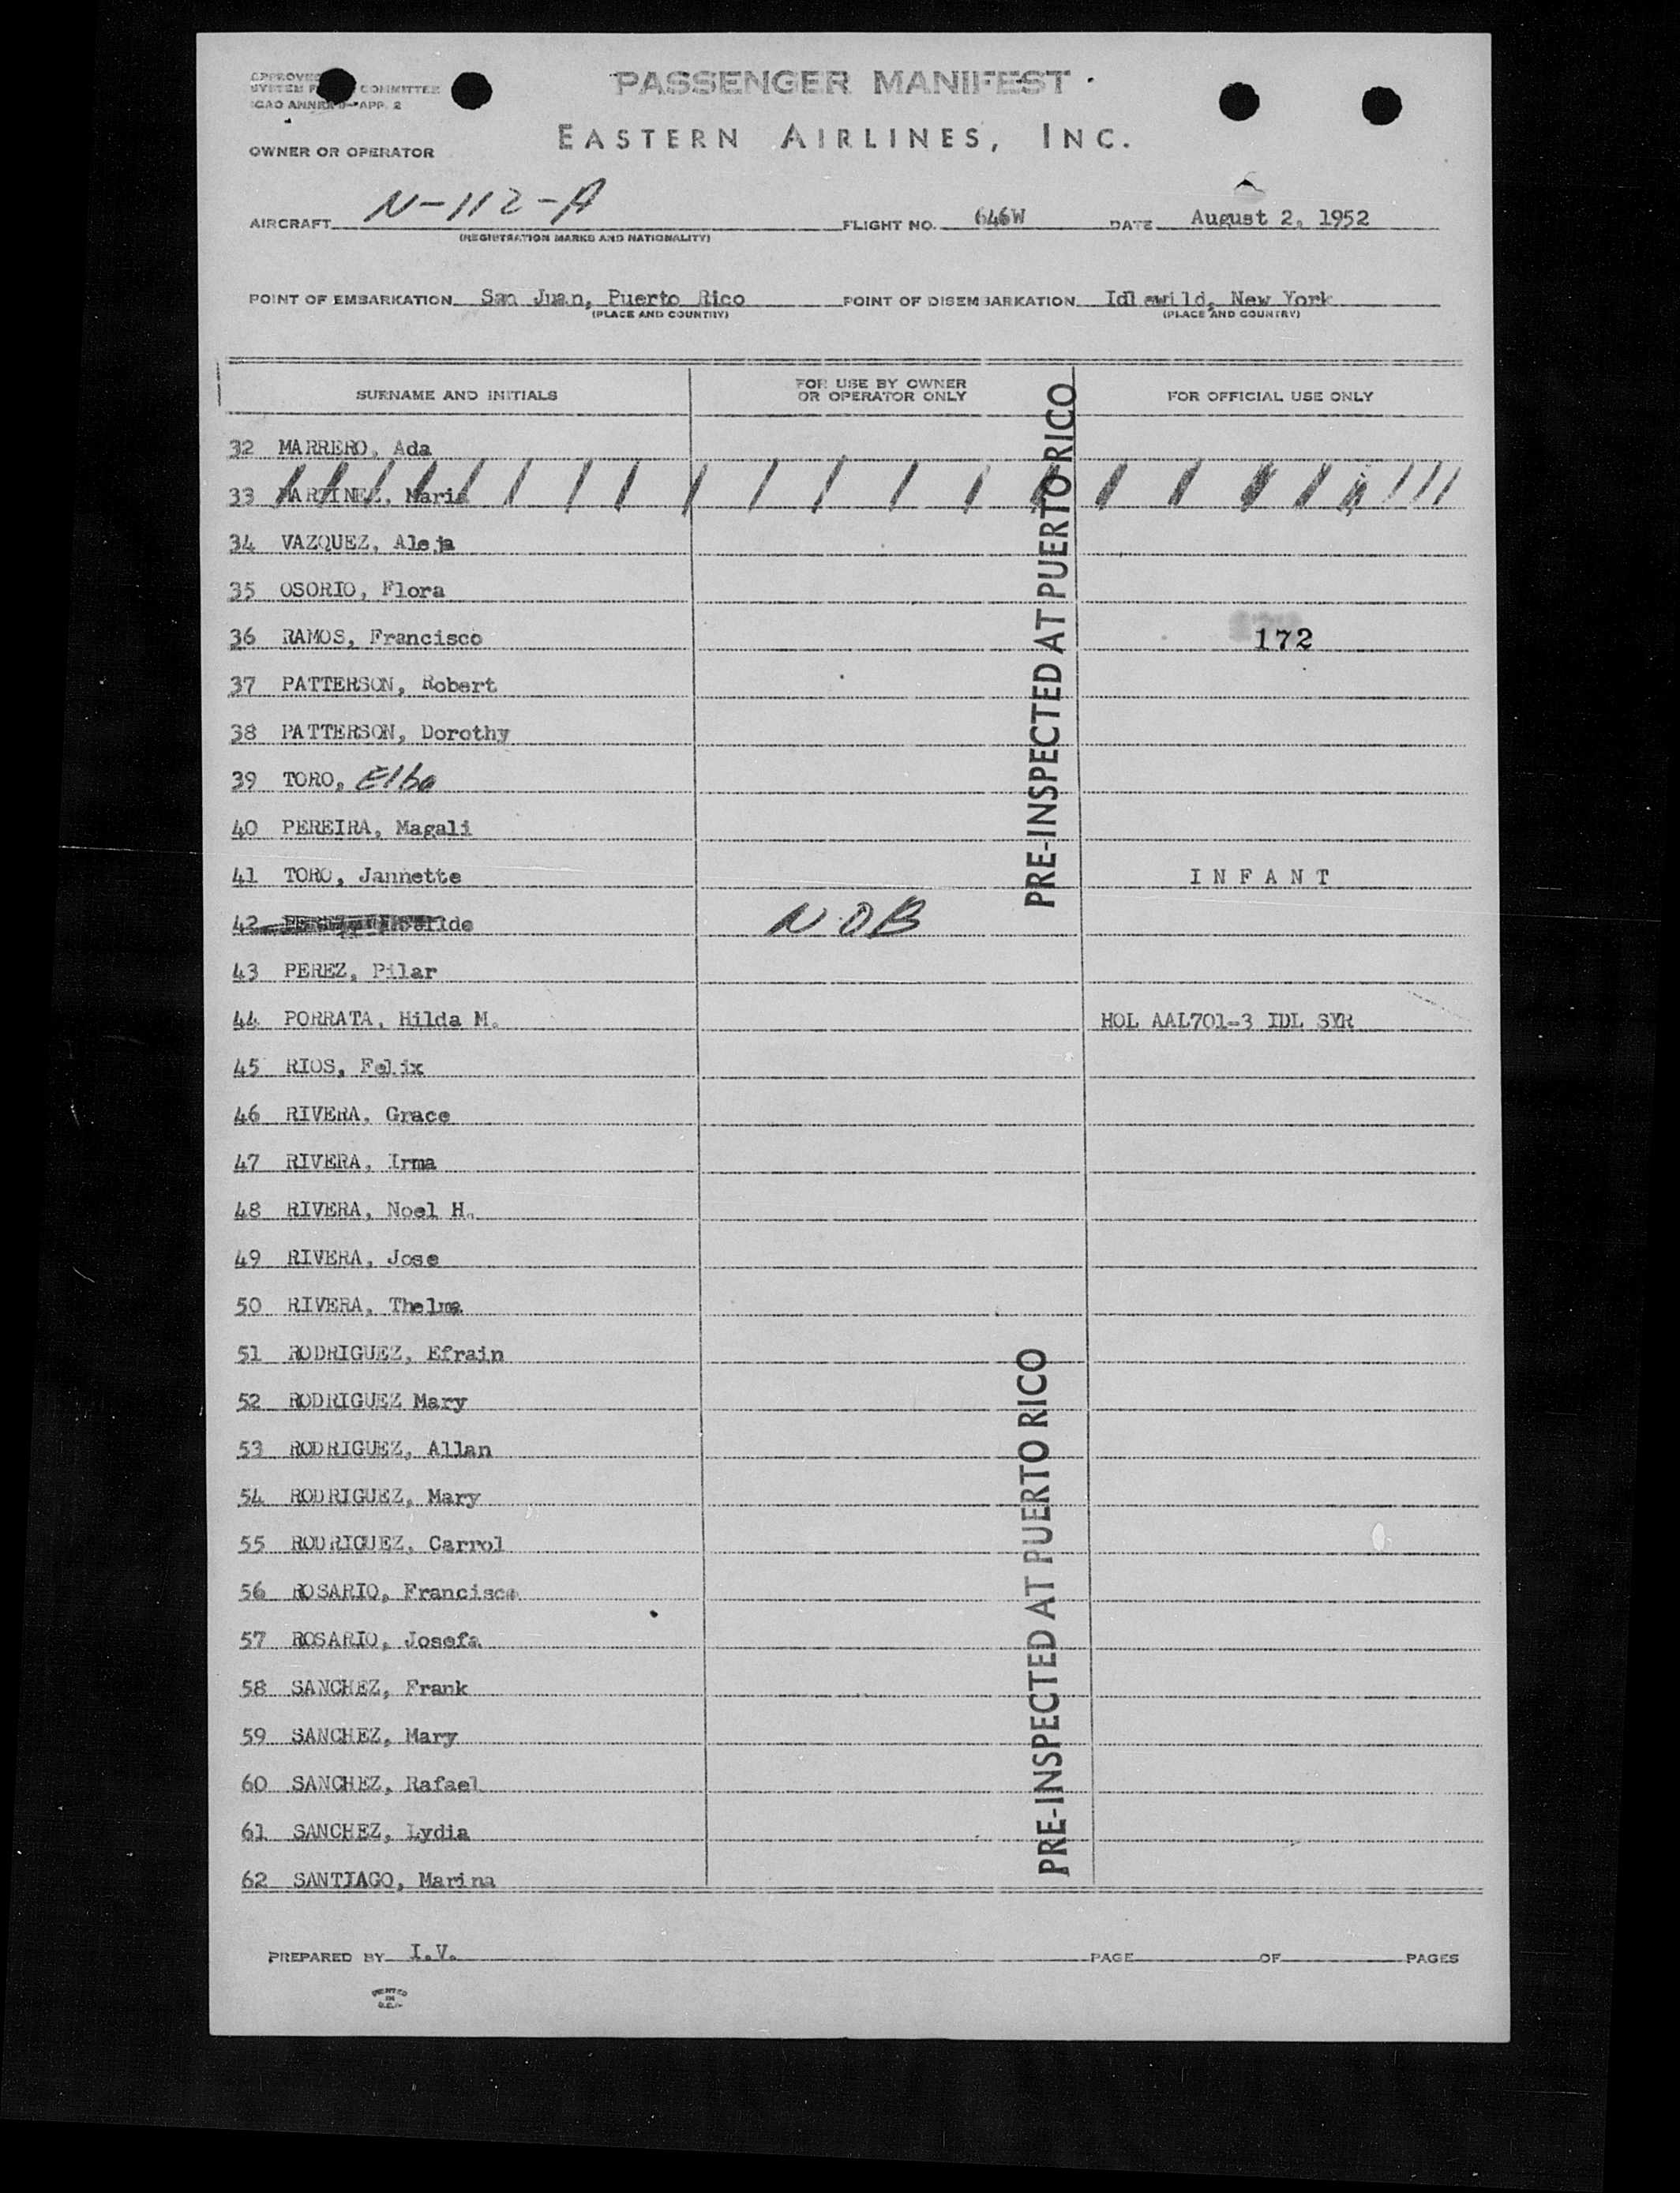 APPROVED
SYSTEM F COMMITTEE
ICAO ANNEX 9-APP. 2
PASSENGER MANIFEST
EASTERN AIRLINES, INC.
OWNER OR OPERATOR
AIRCRAFT N-112-A FLIGHT NO. 646W DATE August 2, 1952
(REGISTRATION MARKS AND NATIONALITY)
POINT OF EMBARKATION San Juan, Puerto Rico POINT OF DISEMBARKATION Idlewild, New York
(PLACE AND COUNTRY) (PLACE AND COUNTRY)
SURNAME AND INITIALS FOR USE BY OWNER OR OPERATOR ONLY FOR OFFICIAL USE ONLY
32 MARRERO, Ada
33 MARTINEZ, Maria
34 VAZQUEZ, Aleja
35 OSORIO, Flora
36 RAMOS, Francisco 172
37 PATTERSON, Robert
38 PATTERSON, Dorothy
39 TORO, Elba
40 PEREIRA, Magali
41 TORO, Jannette INFANT
42 NOB
43 PEREZ, Pilar
44 PORRATA, Hilda M. HOL AAL701-3 IDL SYR
45 RIOS, Felix
46 RIVERA, Grace
47 RIVERA, Irma
48 RIVERA, Noel H.
49 RIVERA, Jose
50 RIVERA, Thelma
51 RODRIGUEZ, Efrain
52 RODRIGUEZ Mary
53 RODRIGUEZ, Allan
54 RODRIGUEZ, Mary
55 RODRIGUEZ, Carrol
56 ROSARIO, Francisco
57 ROSARIO, Josefa
58 SANCHEZ, Frank
59 SANCHEZ, Mary
60 SANCHEZ, Rafael
61 SANCHEZ, Lydia
62 SANTIAGO, Marina
PRE-INSPECTED AT PUERTO RICO
PRE-INSPECTED AT PUERTO RICO
PREPARED BY I.V. PAGE OF PAGES
PRINTED
IN
U.S.A.